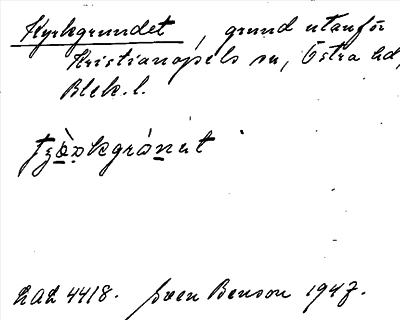 Kyrkgrundet, grund utanför
Kristianopels sn, Östra hd,
Blek. l.
LAL 4418. Sven Benson 1947.